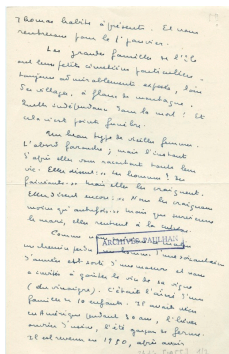 Thomas habite à présent. Et nous
rentrerons pour le 1er janvier.
Les grandes familles de l'île
ont leurs petits cimetières particuliers —
toujours admirablement exposés, loin
du village, à flanc de montagne.
Quelle indépendance dans la mort ! Et
cela n'est point funèbre.
Un beau type de vieilles femmes.
L'abord farouche ; mais l'instant
d'après elles vous racontent toute leur
vie. Elles disent : « Les hommes ! Des
fainéants. » mais elles les craignent.
Elles disent encore : « Nous les craignons
moins qu'autrefois » mais que survienne
le mari, elles rentrent à la
Comme
un chemin
ARCHIVES PAULHAN
d'années est sorti d'une masure et nous
a invités à goûter le vin de sa vigne
(du vinaigre). C'était l'aîné d'une
famille de 10 enfants. Il avait vécu
en Amérique pendant 40 ans, l'hiver
ouvrier d'usine, l'été garçon de ferme.
Il est revenu en 1950, après avoir